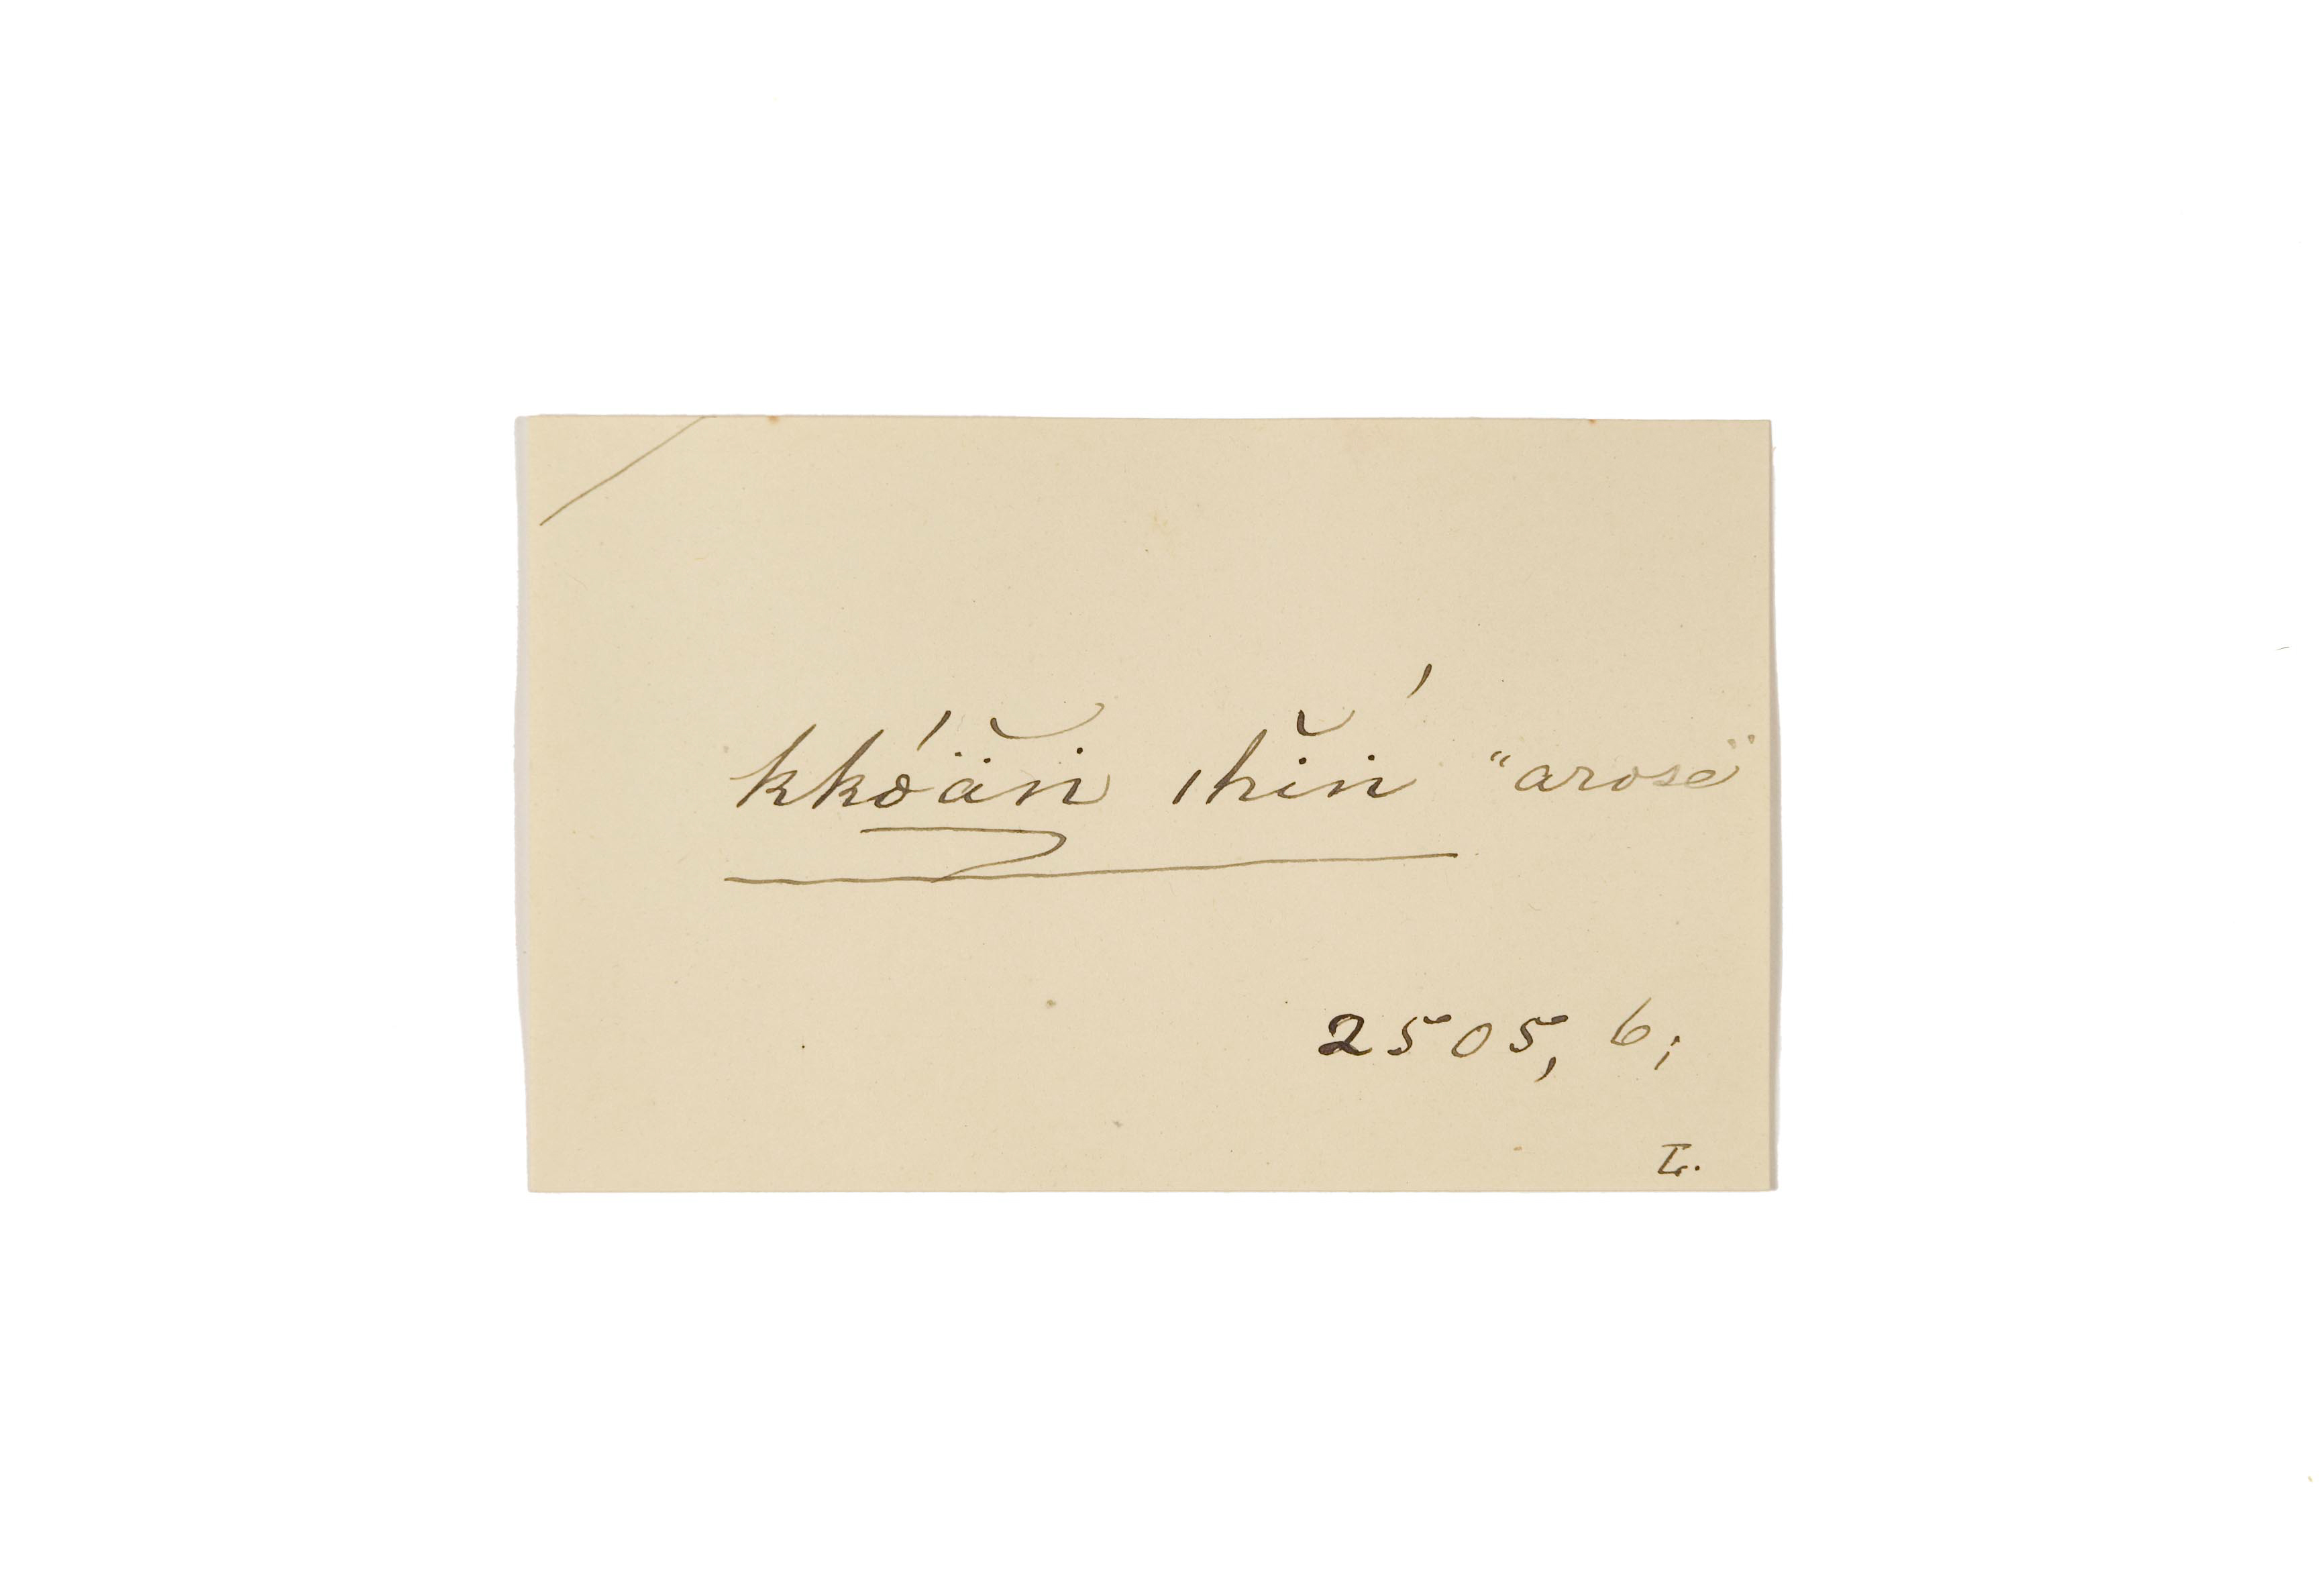 kkó´ä̆ṅ ıhı̆ṅ´ "arose"
2505, 6;
L.